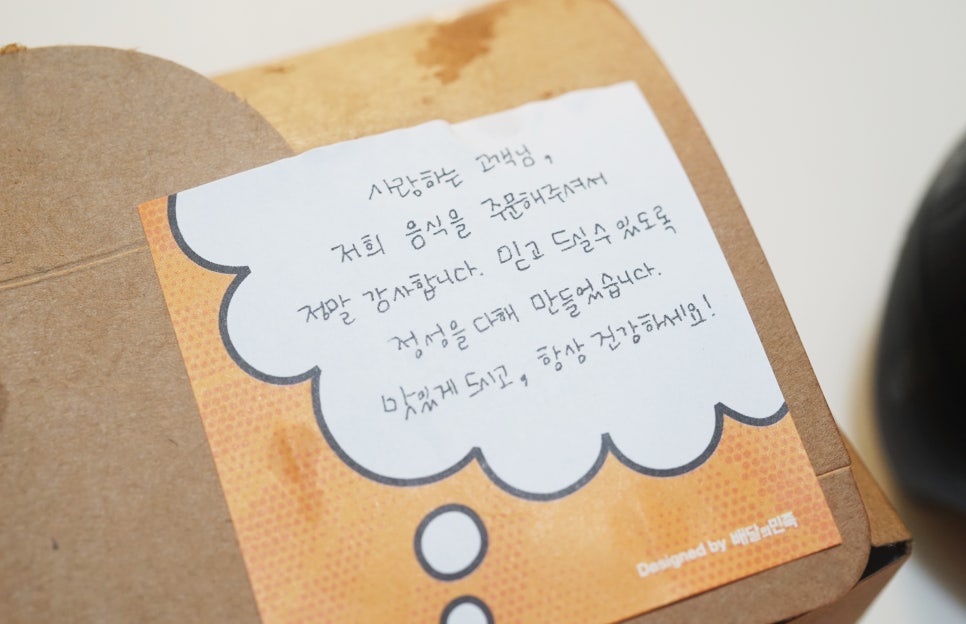 사랑하는 고객님,
저희 음식을 주문해주셔서
정말 감사합니다. 믿고 드실수 있도록
정성을 다해 만들었습니다.
맛있게 드시고, 항상 건강하세요!
Designed by 배달의민족